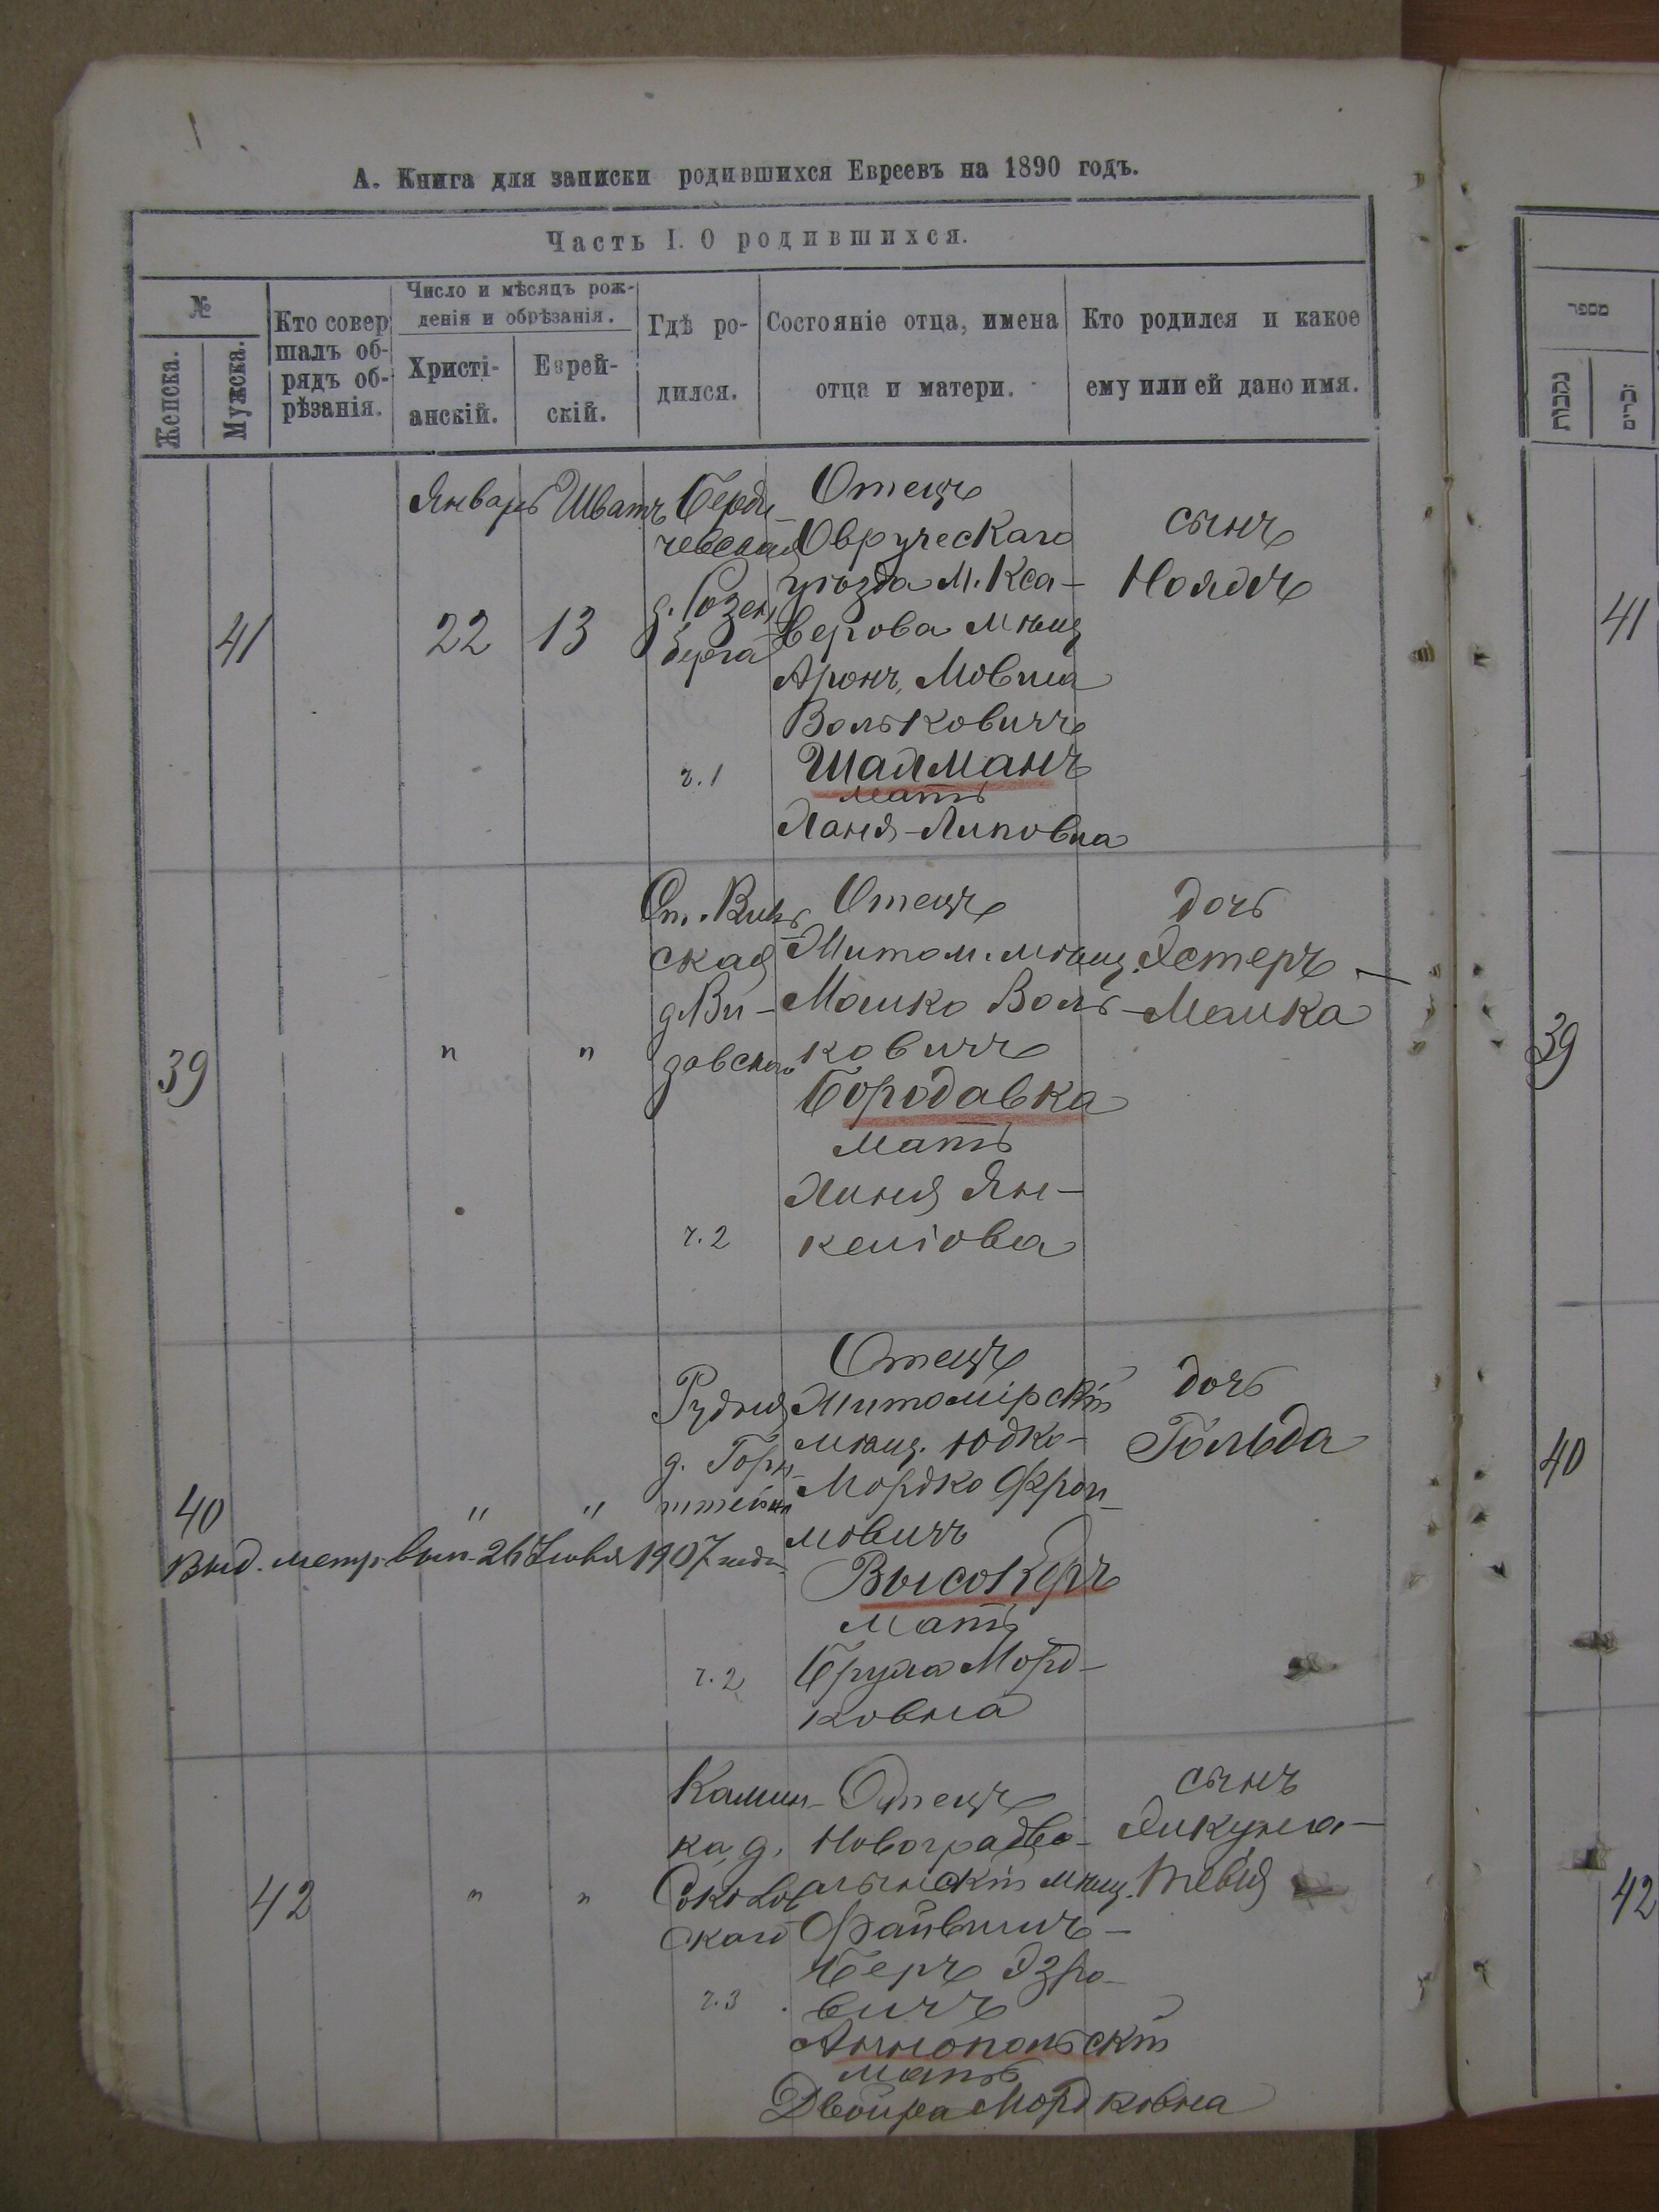 А. Книга для записки родившихся Евреевъ на 1890 годъ.
Часть I. О родившихся.
№
Женска.
Мужска.
Кто совер
шалъ об-
рядъ об-
рѣзанія.
Число и мѣсяцъ рож-
денія и обрѣзанія.
Христі-
анскій.
Еврей-
скій.
Гдѣ ро-
дился.
Состояніе отца, имена
отца и матери.
Кто родился и какое
ему или ей дано имя.
41
Январь
22
Шватъ
13
Берди-
чевская
д. Розен
берга
ч. 1
Отецъ
Овруческаго
уѣзда М. Кса-
верова мѣщ
Аронъ, Мовша
Вольковичъ
Шалманъ
мать
Ханя-Липовна
сынъ
39
"
"
ская
д Ви-
ч. 2
Отецъ
Житом. мѣщ.
Мошко Воль-
ковичъ
Бородавка
мать
Хиня Ян-
келіова
дочь
Эстеръ-
Малка
40
"
"
Рудня
д. Горн-
штейна
ч. 2
Выд. метр. вып. 26 1907 года
Отецъ
Житомірскій
мѣщ. Юдко-
Мордко Фрои-
мовичъ
Высокеръ
мать
Морд-
ковна
дочь
Гольда
42
"
"
Камин-
ка, д.
Соколов
скаго
ч. 3
Отецъ
Новоградво-
лынскій мѣщ.
Файвишъ-
Беръ Эзро-
вичъ
Аннопольскій
мать
Двойра Мордковна
сынъ
Тевія
מספר
נקבות
זכרים
41
39
40
42